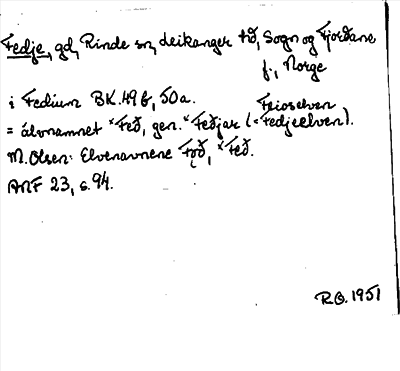 Fedje, gd, Rinde sn, Leikanger hd, Sogn og Fjordane
f., Norge
i Fedium BK. 49 b, 50a.
= älvnamnet *Feð, gen. *Feðjar (= Feioselven
Fedjeelven).
M. Olsen: Elvenavnene Foð, *Feð.
ANF 23, s. 94.
R.O. 1951